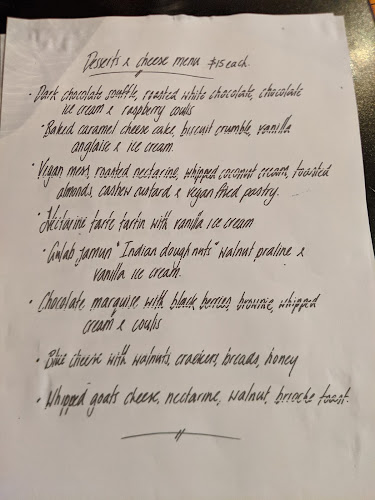 Desserts & cheese menu $15 each.
• Dark chocolate souffle, roasted white chocolate, chocolate
ice cream & raspberry coulis
• Baked caramel cheese cake, biscuit crumble, vanilla
anglaise & ice cream.
• Vegan mess, roasted nectarine, whipped coconut cream, toasted
almonds, cashew custard & vegan filed pastry.
• Nectarine tarte tartin with vanilla ice cream
• Gulab jamun "Indian doughnuts" walnut praline &
vanilla ice cream.
• Chocolate marquise with black berries, brownie, whipped
cream & coulis
• Blue cheese with walnuts, crackers, breads, honey
• Whipped goats cheese, nectarine, walnut, brioche toast.